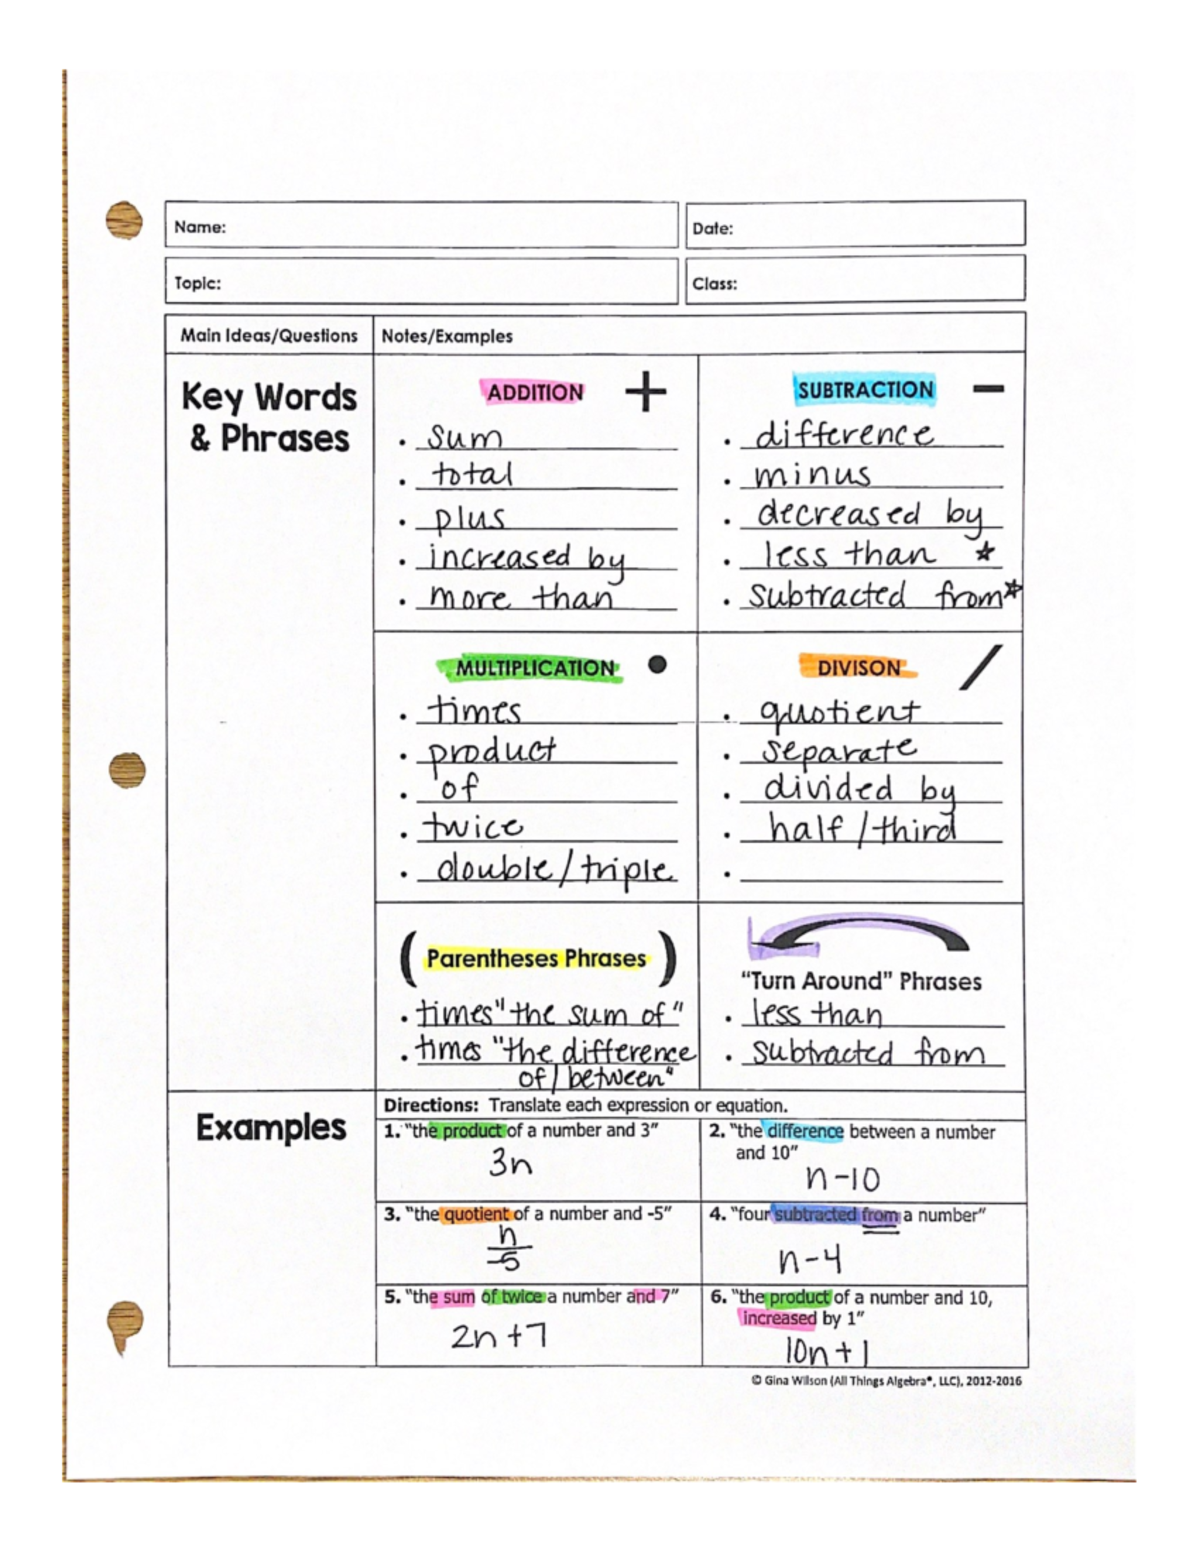 Name:
Date:
Topic:
Class:
Main Ideas/Questions
Notes/Examples
Key Words
& Phrases
ADDITION +
• sum
• total
• plus
• increased by
• more than
SUBTRACTION −
• difference
• minus
• decreased by
• less than ☆
• subtracted from☆
MULTIPLICATION •
• times
• product
• of
• twice
• double/triple
DIVISON /
• quotient
• separate
• divided by
• half/third
•
( Parentheses Phrases )
• times "the sum of"
• times "the difference
of/between"
"Turn Around" Phrases
• less than
• subtracted from
Examples
Directions: Translate each expression or equation.
1. "the product of a number and 3"
3n
2. "the difference between a number
and 10"
n-10
3. "the quotient of a number and -5"
n
-5
4. "four subtracted from a number"
n-4
5. "the sum of twice a number and 7"
2n+7
6. "the product of a number and 10,
increased by 1"
10n+1
© Gina Wilson (All Things Algebra®, LLC), 2012-2016